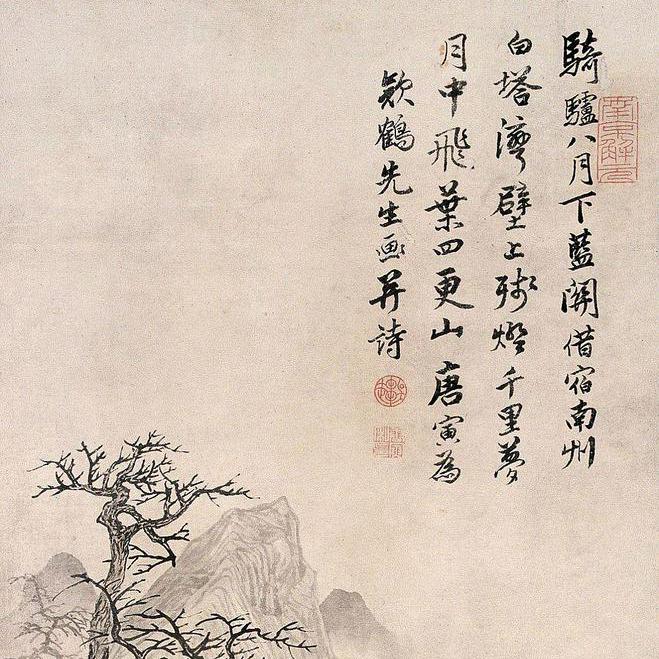 騎驢八月下藍關借宿南州
白塔灣壁上殘燈千里夢
月中飛葉四更山唐寅為
欵鶴先生画并詩
南京解元